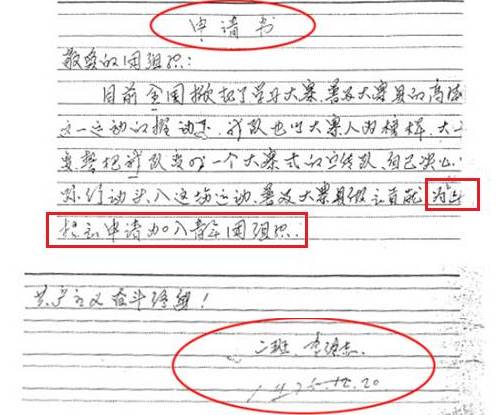 申请书
敬爱的团组织：
目前全国掀起了学大寨、普及大寨县的高潮
这一运动的推动下，我队也以大寨人为榜样，大
变，我队变为一个大寨式的宣传队，自己决心
际行动投入这场运动，普及大寨县做出贡献，为
提出申请加入青年团组织。
共产主义奋斗终身！
二班
1975—12.20